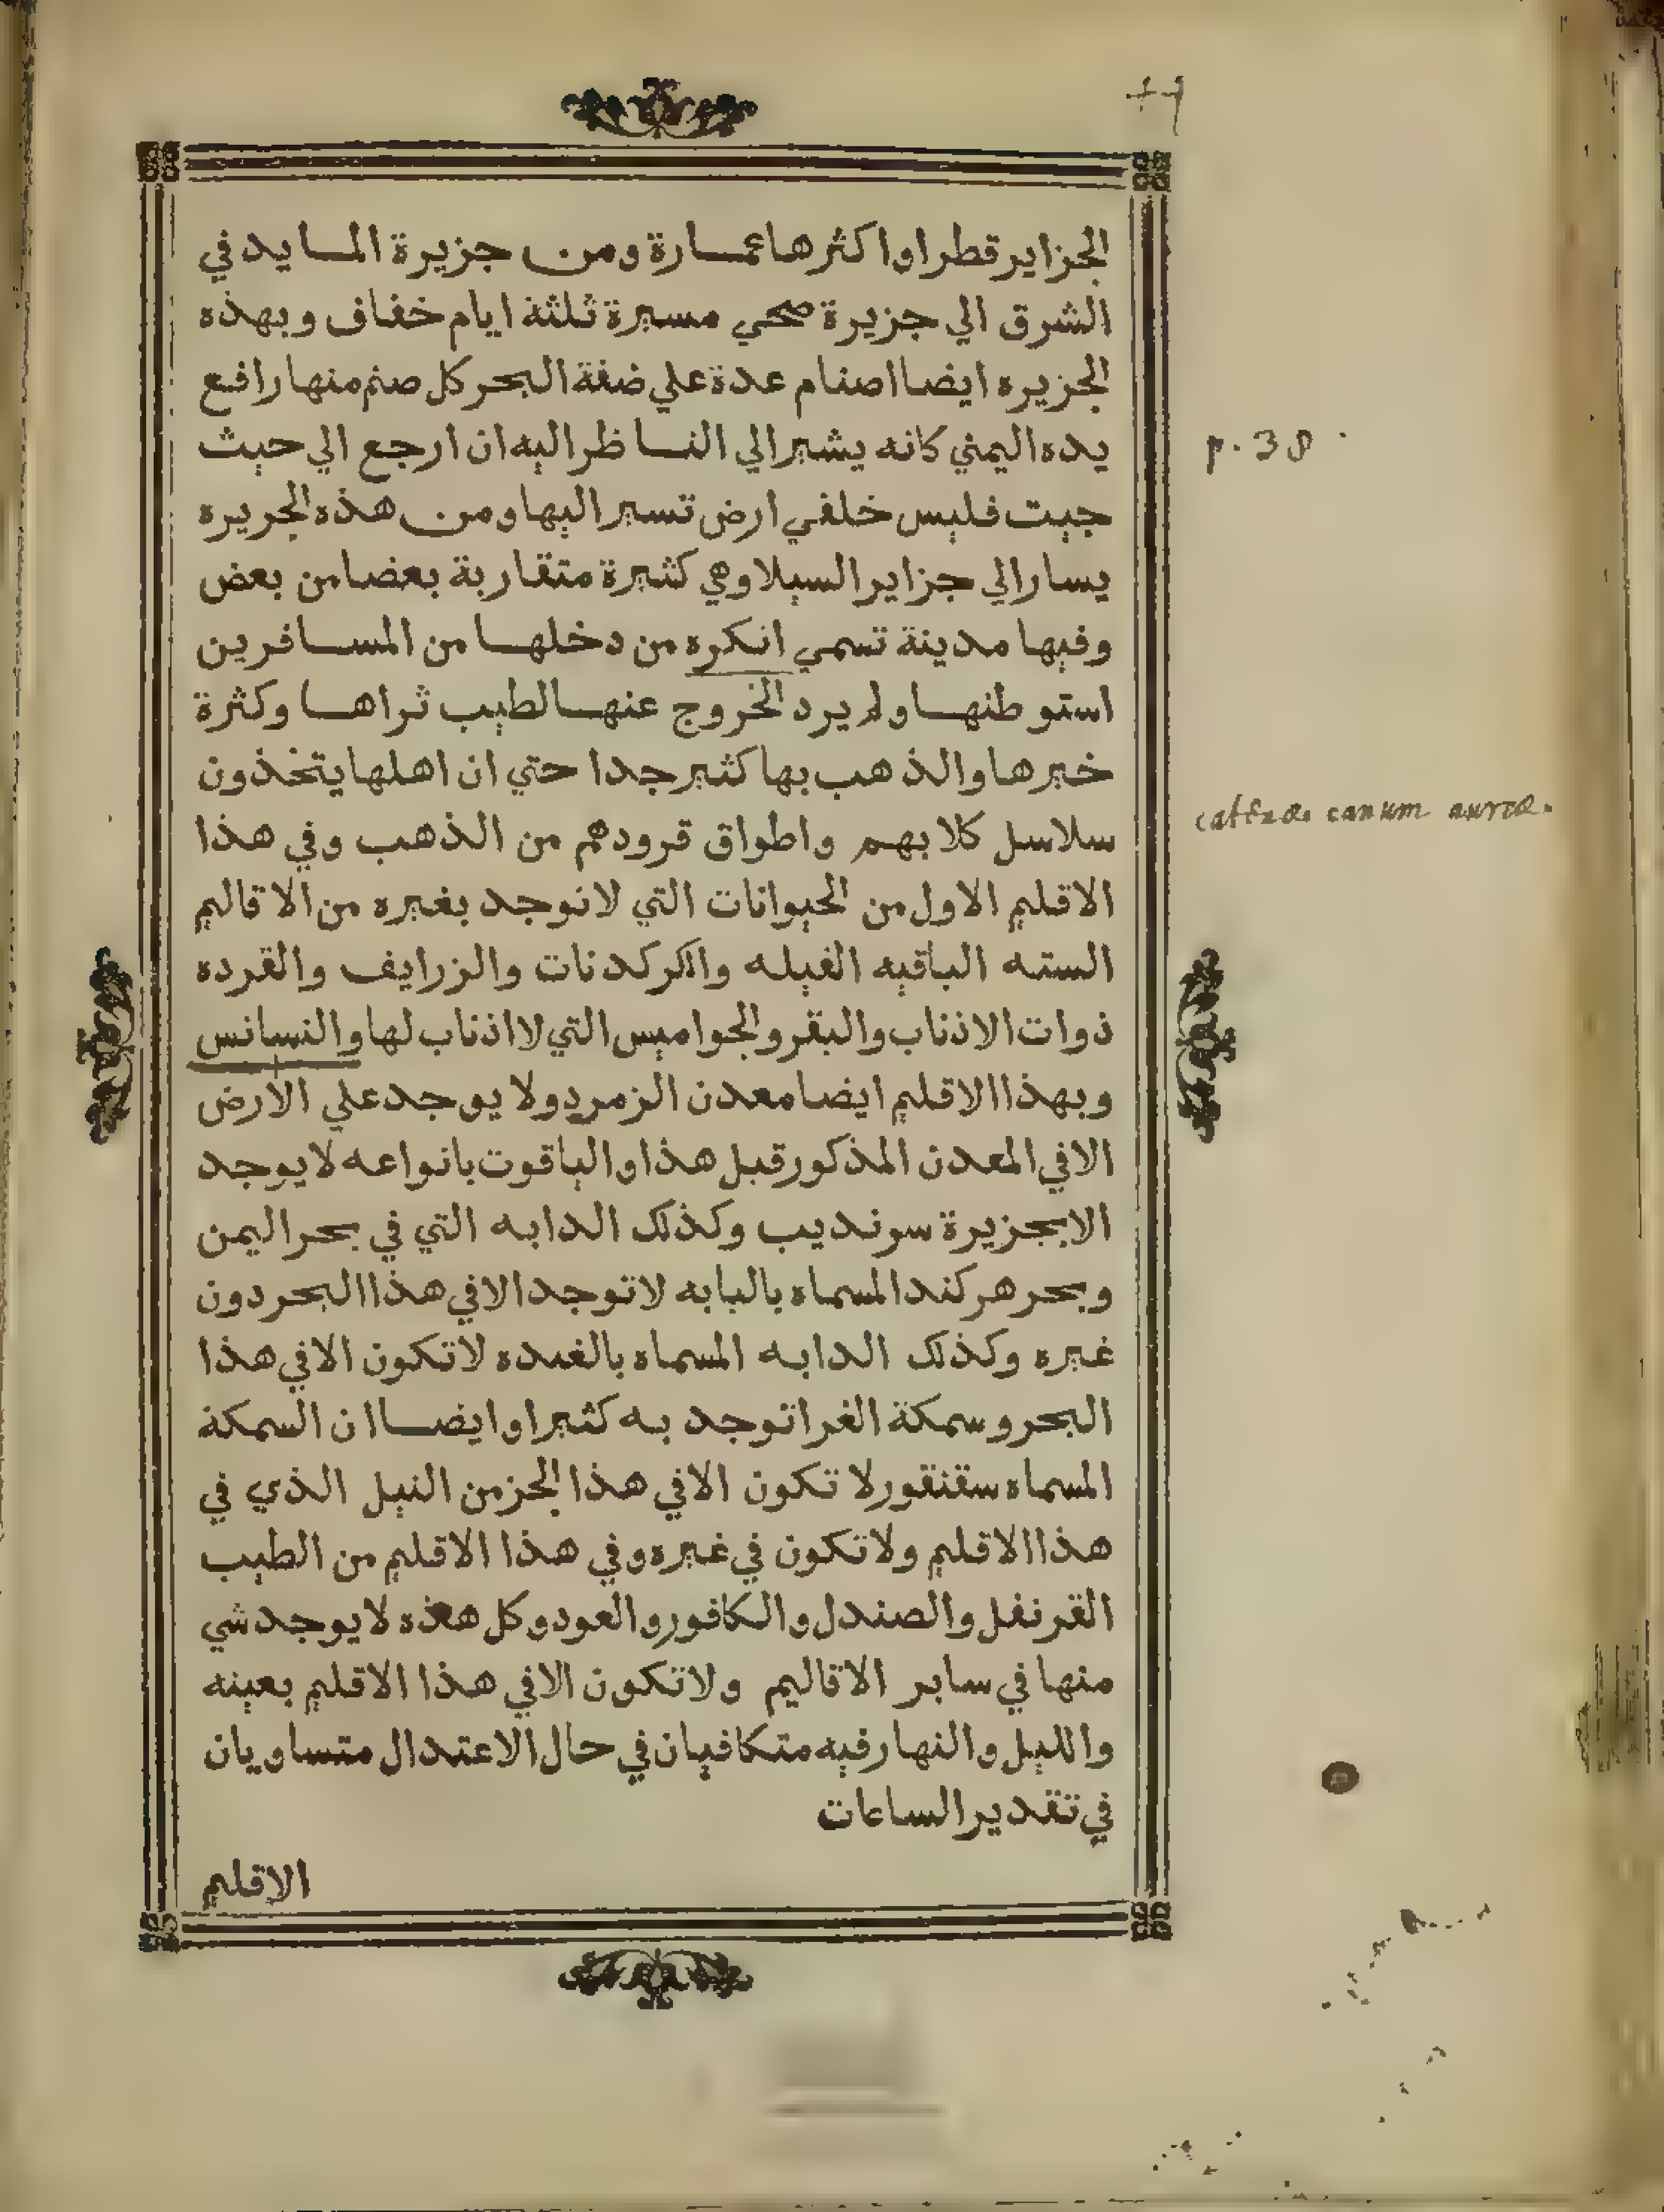 الجزاير قطرا واكثرها عمارة ومن جزيرة المايد في
الشرق الي جزيرة صحي مسيرة ثلثة ايام خفاف وبهذه
الجزيره ايضا اصنام عدة علي ضفة البحر كل صنم منها رافع
يده اليمني كانه يشير الي الناظر اليه ان ارجع الي حيث
جيت فليس خلفي ارض تسير اليها ومن هذه الجريره
يسار الي جزاير السيلا وهي كثيرة متقاربة بعضا من بعض
وفيها مدينة تسمي انكره من دخلها من المسافرين
استوطنها ولم يرد الخروج عنها لطيب ثراها وكثرة
خيرها والذهب بها كثير جدا حتي ان اهلها يتخذون
سلاسل كلابهم واطواق قرودهم من الذهب وفي هذا
الاقليم الاول من الحيوانات التي لا توجد بغيره من الاقاليم
السته الباقيه الفيله والكركدنات والزرايف والقرده
ذوات الاذناب والبقر والجواميس التي لا اذناب لها والنسانس
وبهذا الاقليم ايضا معدن الزمرد ولا يوجد علي الارض
الا في المعدن المذكور قبل هذا والياقوت بانواعه لا يوجد
الا بجزيرة سرنديب وكذلك الدابه التي في بحر اليمن
وبحر هركند المسماه بالبابه لا توجد الا في هذا البحر دون
غيره وكذلك الدابه المسماه لا تكون الا في هذا
البحر وسمكة الغرا توجد به كثيرا وايضا ان السمكة
المسماه سقنقور لا تكون الا في هذا الجز من النيل الذي في
هذا الاقليم ولا تكون في غيره وفي هذا الاقليم من الطيب
القرنفل والصندل والكافور والعود وكل هذه لا يوجد شي
منها في ساير الاقاليم ولا تكون الا في هذا الاقليم بعينه
والليل والنهار فيه متكافيان في حال الاعتدال متساويان
في تقدير الساعات
الاقليم
p. 38.
catenæ canum aureæ.